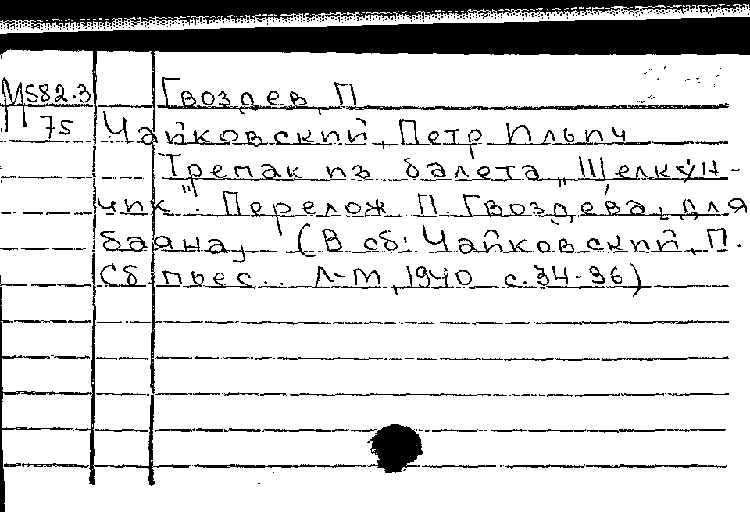 М582.3 Гвоздев, П
П 75 Чайковский, Петр Ильич
Трепак из балета „Щелкун-
чик". Перелож П Гвоздева, для
баяна, (В сб: Чайковский, П.
Сб пьес.. Л-М, 1940 с.34-36)